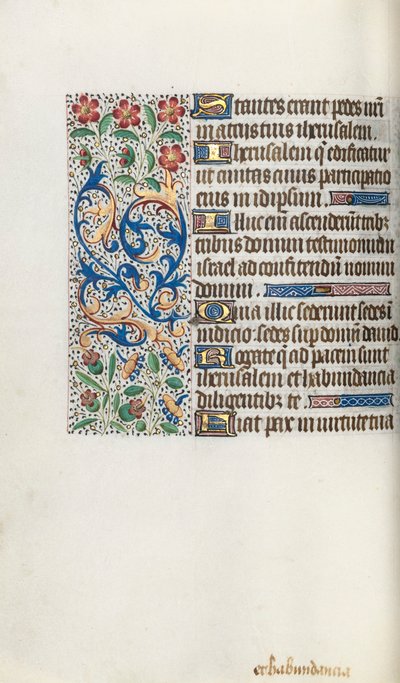 Stantes erant pedes nr̄i
in atriis tuis iherusalem.
Iherusalem q̄ edificatur
ut ciuitas cuius participatio
eius in idipsum.
Illuc enī ascenderūt trib᷒
tribus domini testimoniū
israel ad confitendū nomini
domini.
Quia illic sederunt sedes i
iudicio. sedes sup domū dauid.
Rogate q̄ ad pacem sunt
iherusalem et habundancia
diligentibus te.
Fiat pax in uirtute tua
et habundancia